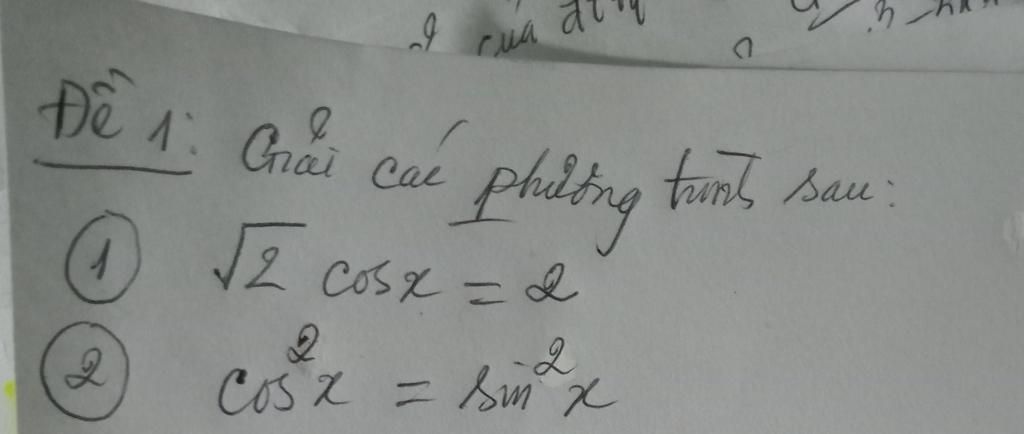 của
Đề 1: Giải các phương trình sau:
① √2 cosx = 2
② cos²x = sin²x